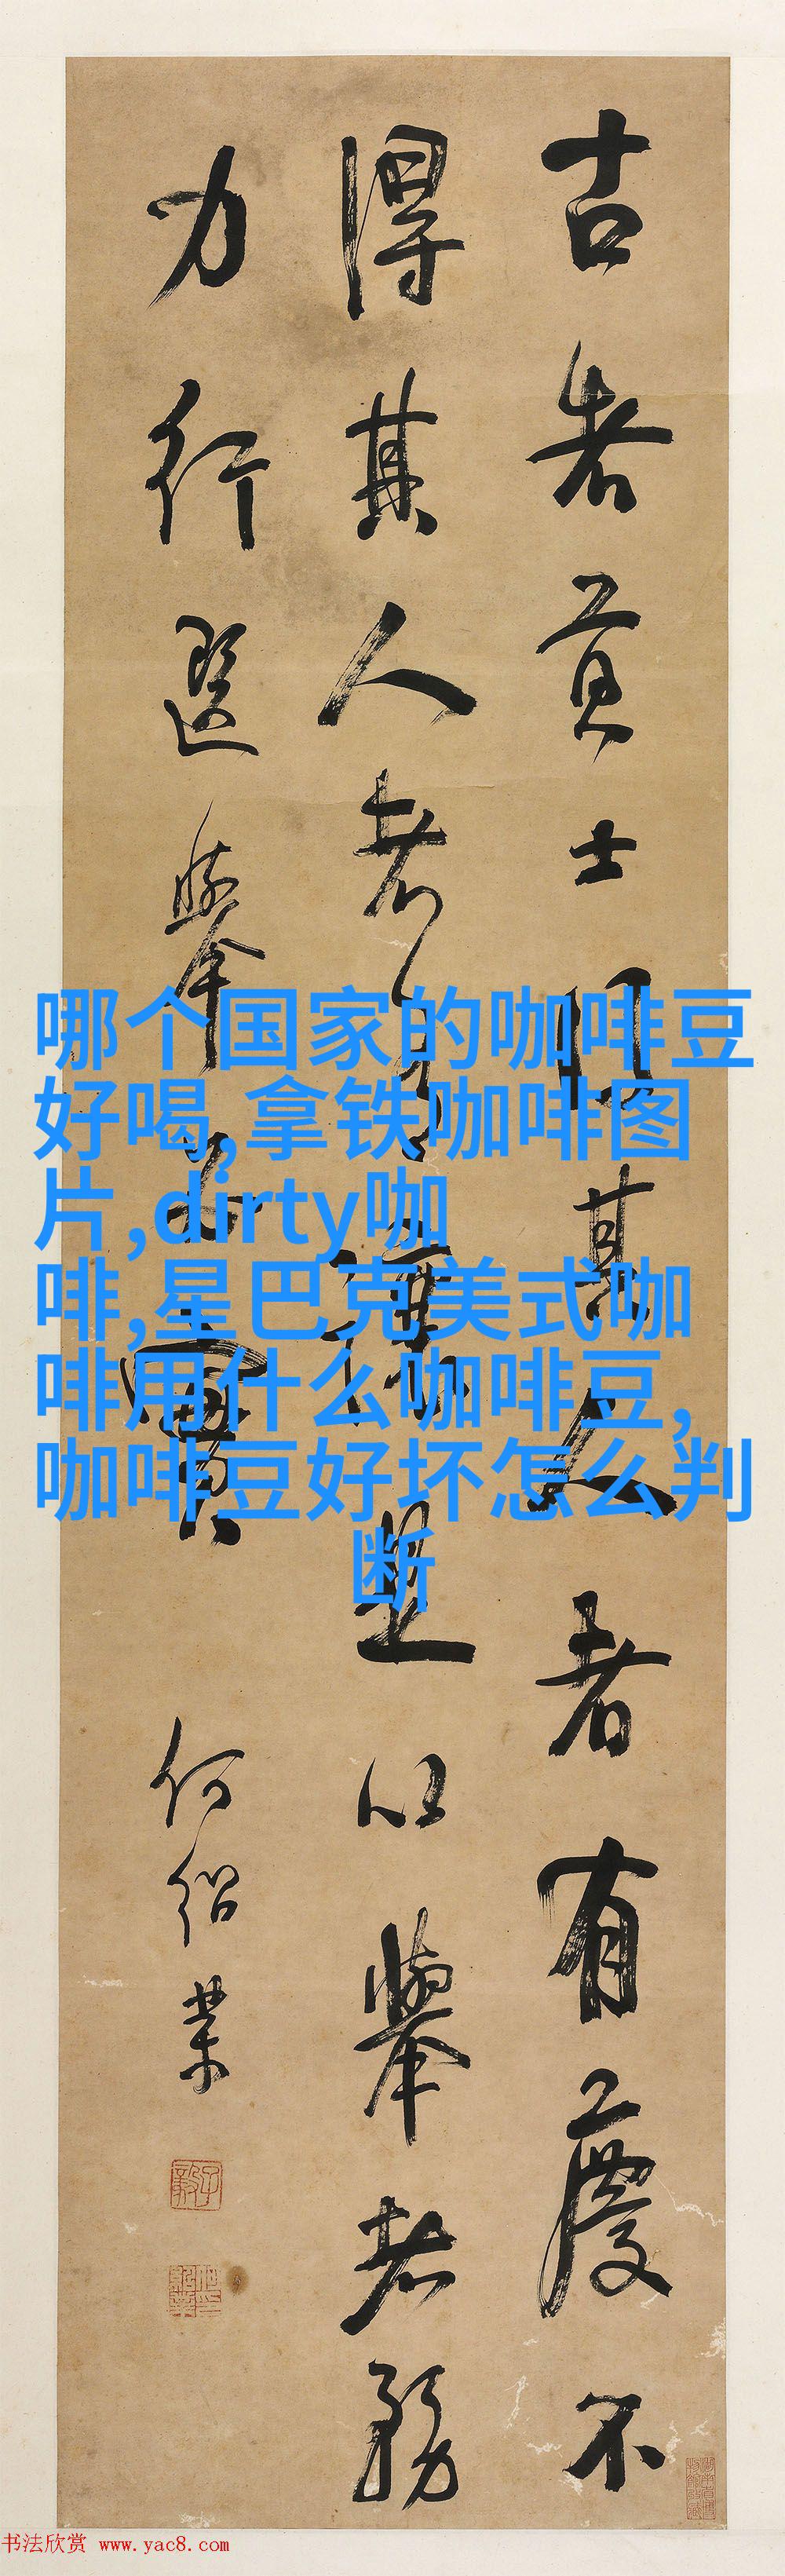 古者貢士其人者有慶不
得其人者有讓是以舉者務
力行選舉實
何紹業
哪个国家的咖啡豆
好喝,拿铁咖啡图
片,dirty咖
啡,星巴克美式咖
啡用什么咖啡豆,
咖啡豆好坏怎么判
断
书法欣赏 www.yac8.com